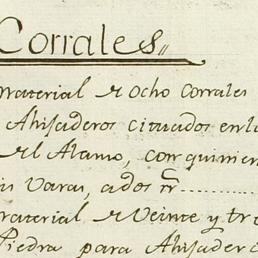 Corrales,,
material de ocho Corrales
Ahijaderos cituados en la
de el Alamo, con quinien
is varas, a dos rr.
material de veinte y tre
Piedra para Ahijader